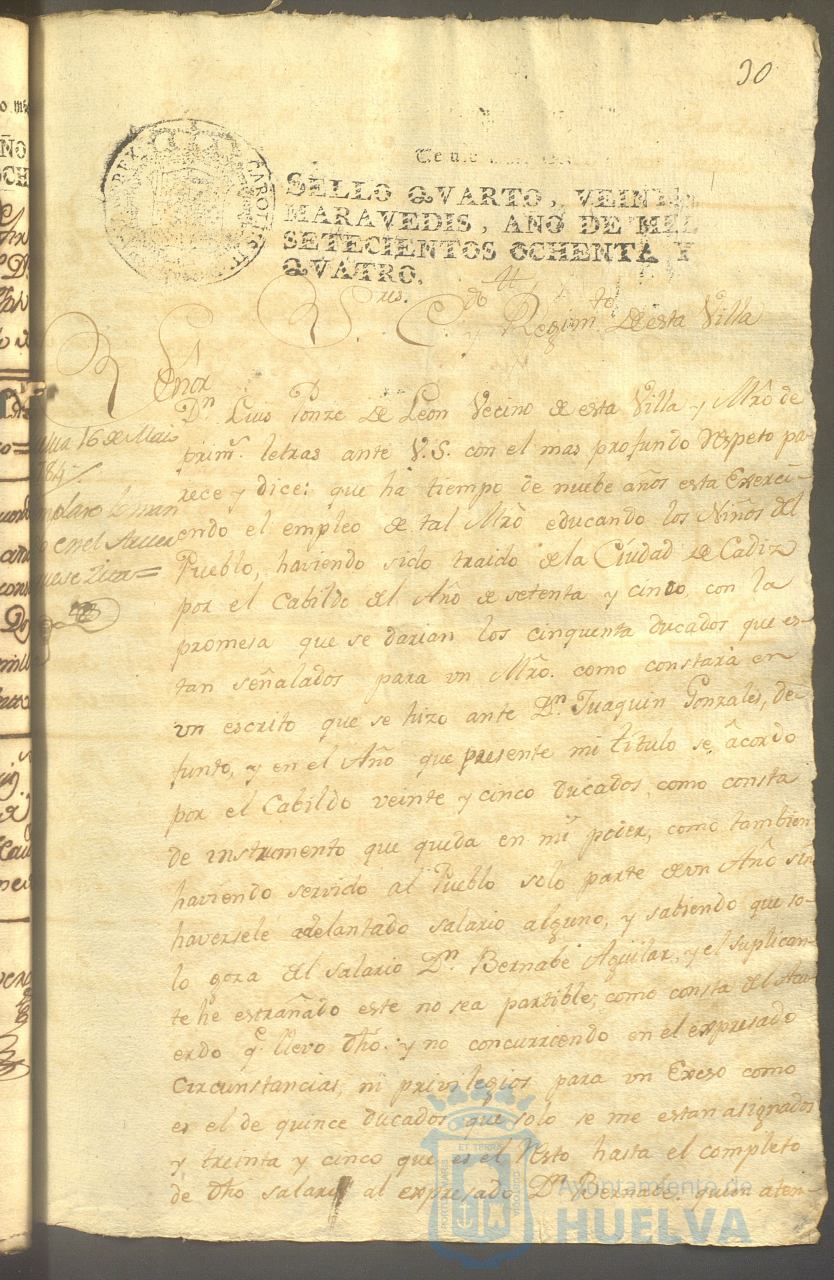 30
SELLO QVARTO, VEINTE
MARAVEDIS, AÑO DE MIL
SETECIENTOS OCHENTA Y
QVATRO.
Regim.to de esta Villa
Señor
D.n Luis Ponze de Leon Vecino de esta Villa y Mrõ de
prim.s letras ante V.S. con el mas profundo respeto pa-
rece y dice: que ha tiempo de nuebe años esta Exerci-
endo el empleo de tal Mrõ educando los Niños del
Pueblo, haviendo sido traido de la Ciudad de Cadiz
por el Cabildo del Año de setenta y cinco, con la
promesa que se darian los cinquenta ducados que es-
tan señalados para vn Mrõ. como constará en
vn escrito que se hizo ante D.n Juaquin Gonzales, de-
funto, y en el Año que presente mi titulo se acordo
por el Cabildo veinte y cinco ducados, como consta
de instrumento que queda en mi poder, como tambien
haviendo servido al Pueblo solo parte de vn Año sin
haversele adelantado salario alguno, y sabiendo que so-
lo goza del salario D.n Bernabe Aguilar, y el suplican-
te he estrañado este no sea partible, como consta del Acu-
erdo q.e llevo dhõ. y no concurriendo en el expresado
Circunstancias, ni privilegios para vn Exceso como
es el de quince ducados, que solo se me estan asignados
y treinta y cinco que es el resto hasta el completo
de dhõ salario al expresado D.n Bernabe, quien aten-
16 de Maio
en el
Ayuntamiento de
HUELVA